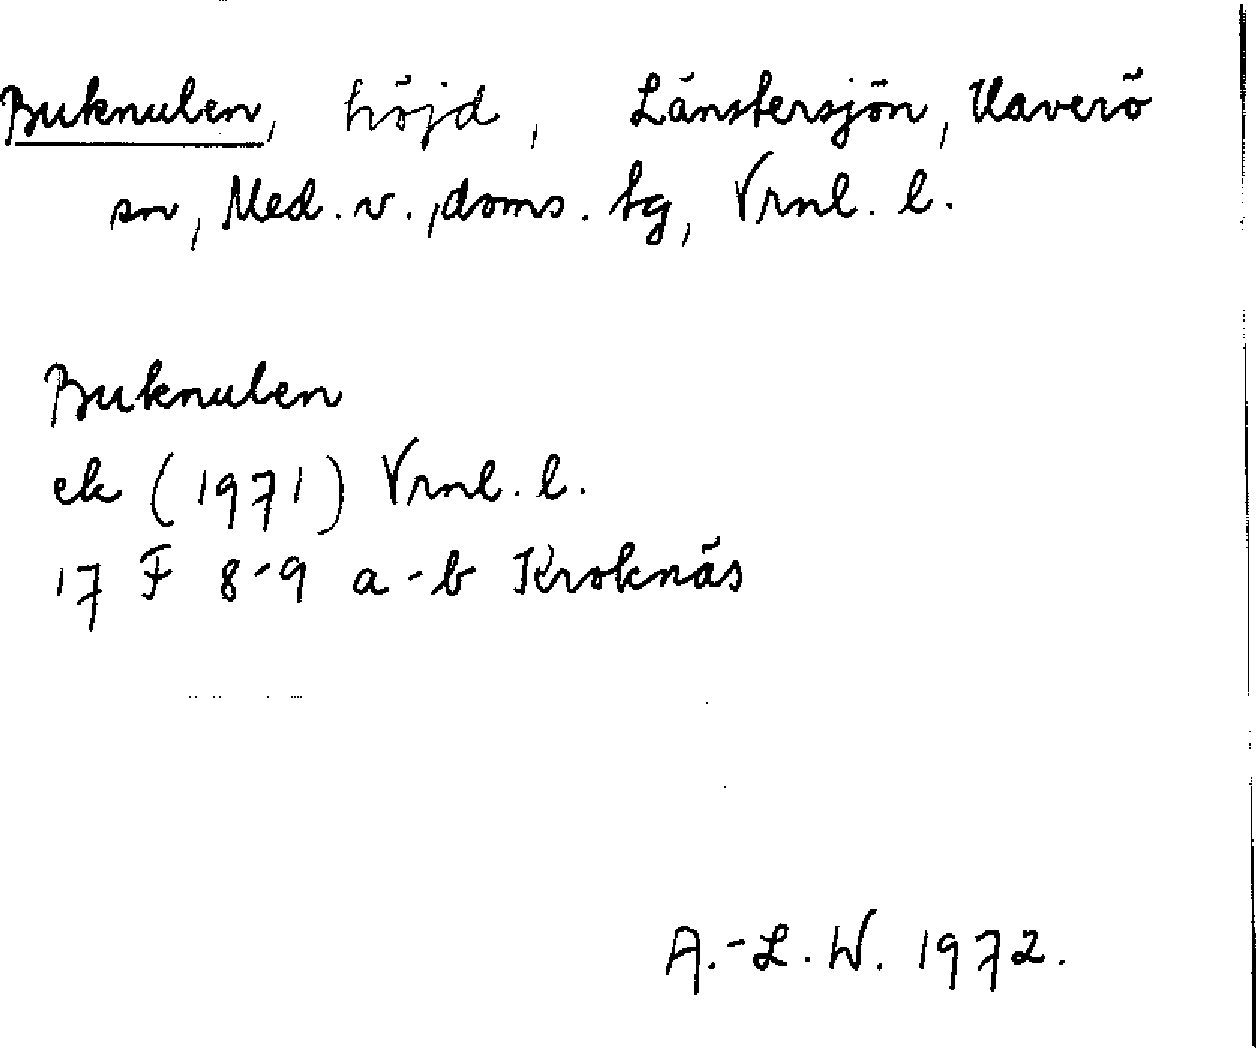 Buknulen, höjd, Länstersjön, Haverö
sn, Med. v., doms. tg, Vrnl. l.
Buknulen
ek (1971) Vrnl. l.
17 F 8-9 a-b Kroknäs
A.-L. W. 1972.